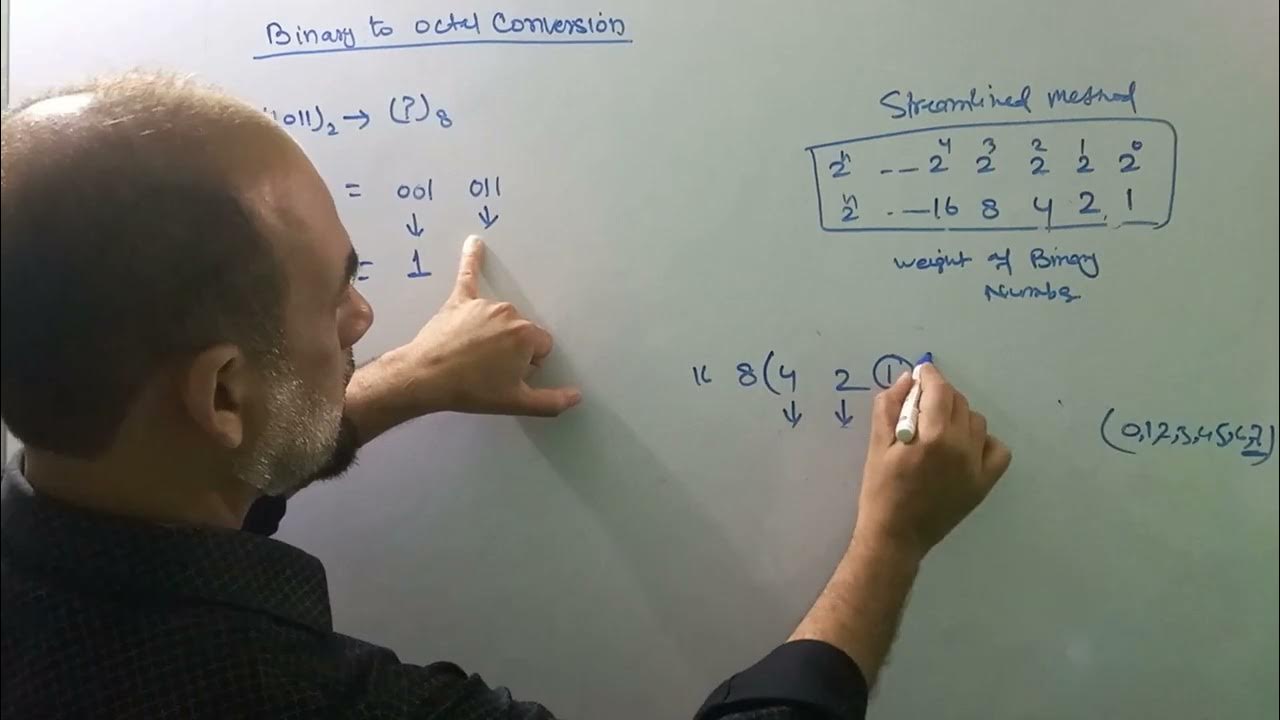 Binary to Octal Conversion
011)₂ → (?)₈
= 001 011
↓ ↓
= 1
Streamlined method
2ⁿ --- 2⁴ 2³ 2² 2¹ 2⁰
2ⁿ --- 16 8 4 2 1
Weight of Binary
Number
16 8 (4 2 1
↓ ↓
(0,1,2,3,4,5,6,7)